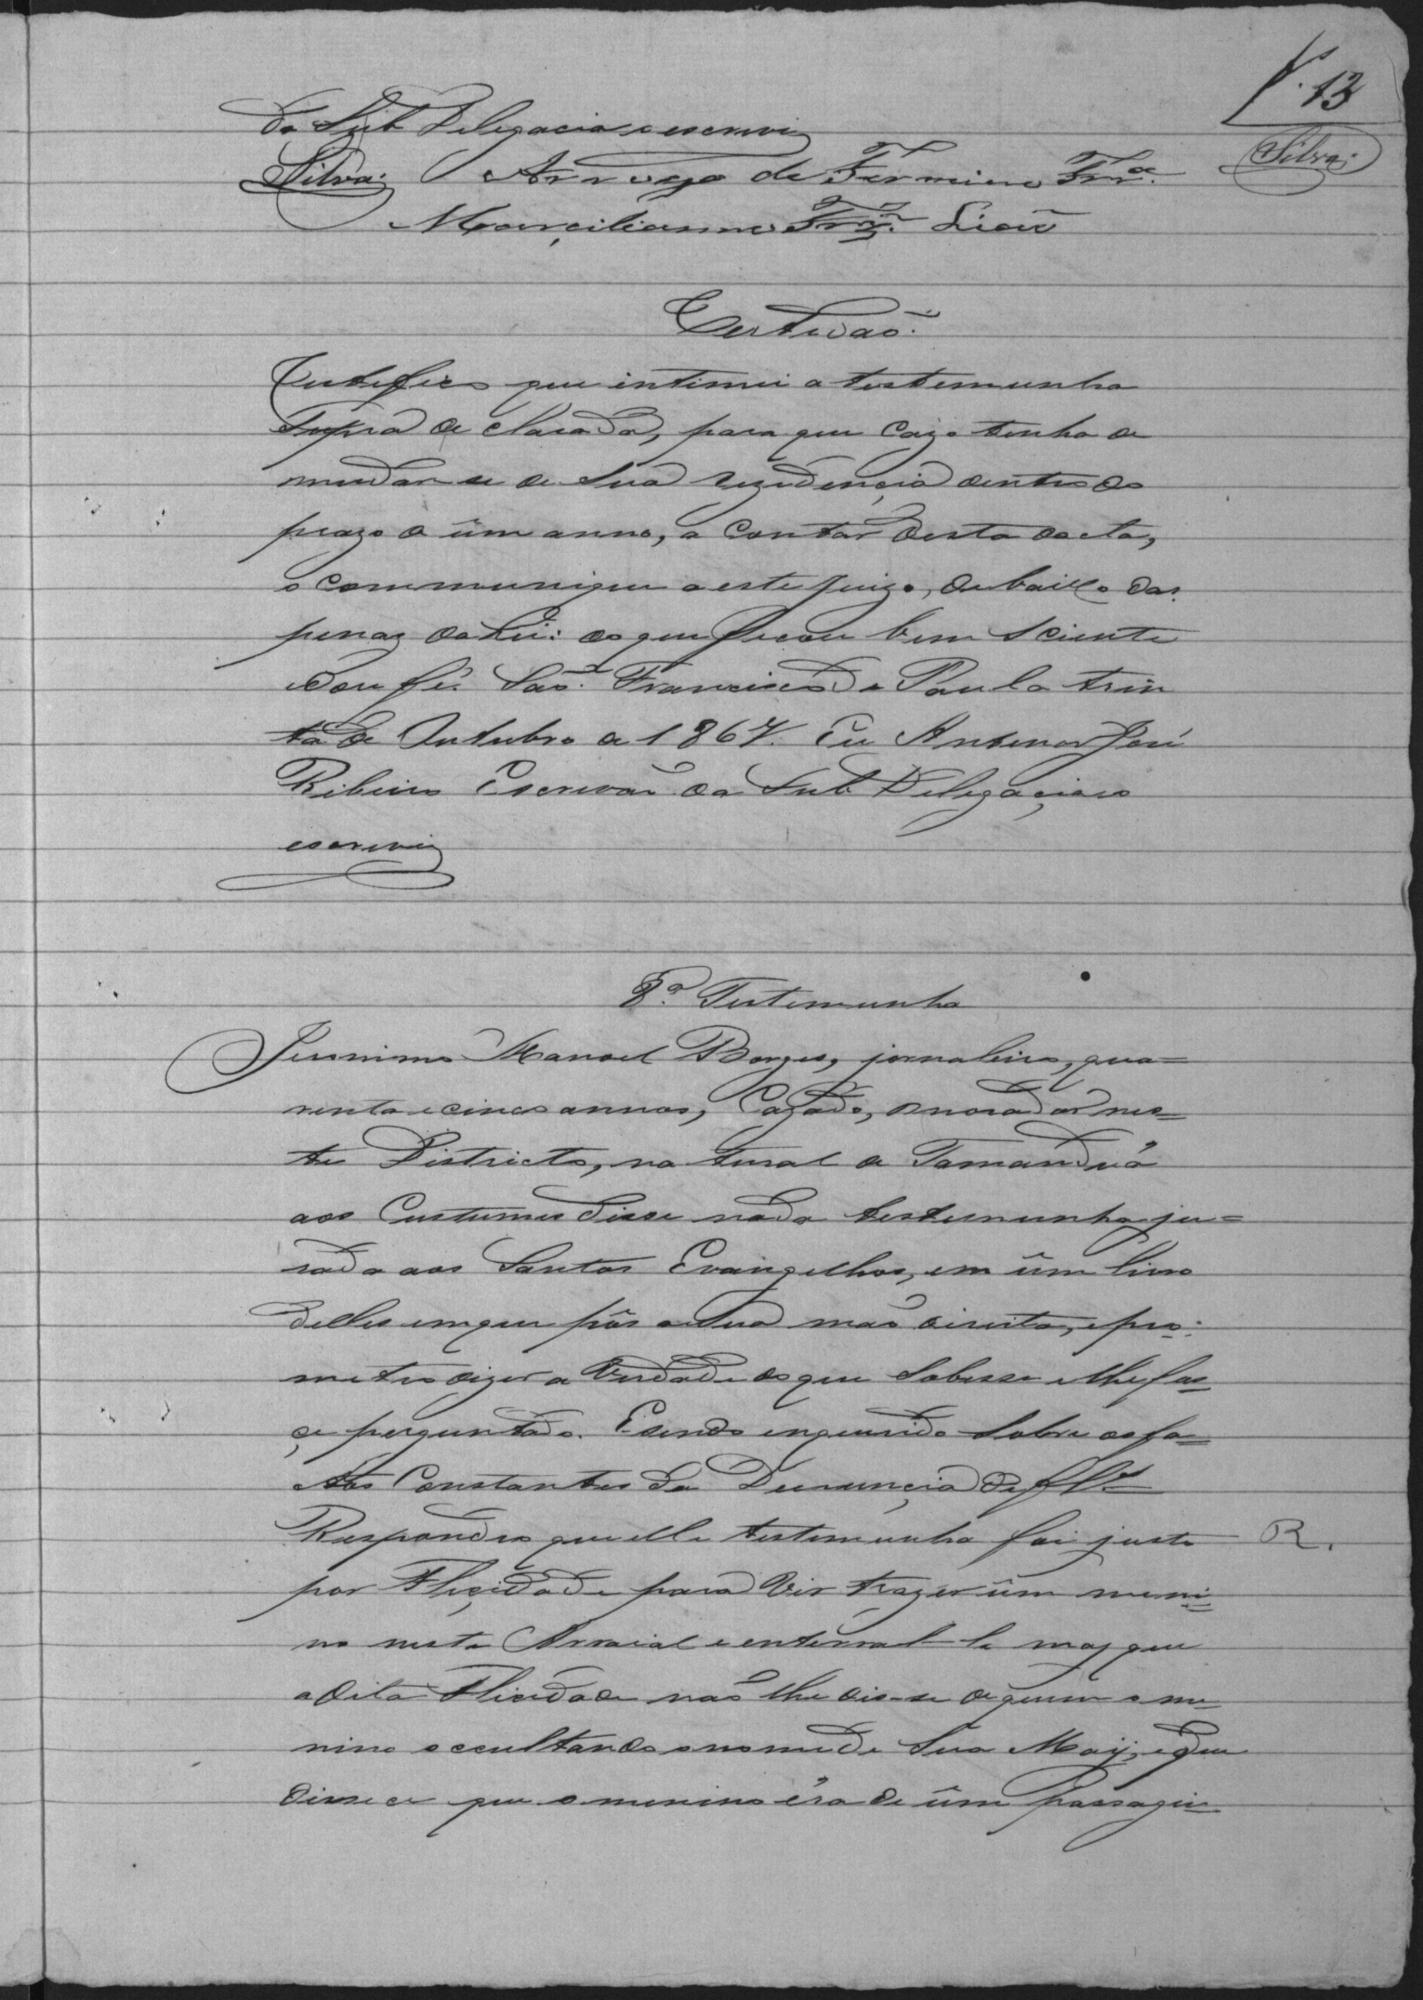 f. 13
Silva
da Sub Delegacia o escrevi
Silva. A rogo de Firmino Frr.ª
Marçilianno Frr.ª Lião
Certidaõ.
Certifico que intimei a testemunha
supra de clarada, para que cazo tenha de
mudar se de sua rezidençia dentro do
prazo de üm anno, a contar desta dacta,
o communique a este juizo, debaixo das
penas da Lei: do que ficou bem sciente
e dou fé. Saõ Francisco de Paula trin
ta de Outubro de 1867. Eu Antenor José
Ribeiro Escrivaõ da Sub Delegaçia o
escrevi
8.ª Testemunha
Jeronimo Manoel Borges, jornaleiro, qua=
renta e cinco annos, Cazado, morador nes=
te Districto, na tural de Tamanduá
aos Custumes disse nada testemunha ju=
rada aos Santos Evangelhos, em üm livro
delles em que pôs a sua maõ direita, e pro=
meteo dizer a verdade do que sobesse e lhe fos=
çe perguntado. E sendo enquerido sobre os fa=
ctos Constantes da Denunçia de fl.ˢ
Respondeo que elle testemunha foi justo R.
por Fliçidade para vir trazer üm meni=
no nesta Arraial e enterral-lo mas que
a dita Flicidade naõ lhe dis-se de quem o me=
nino occultando o nome de sua Maÿ, e que
disse ce que o menino éra de üm passagei=